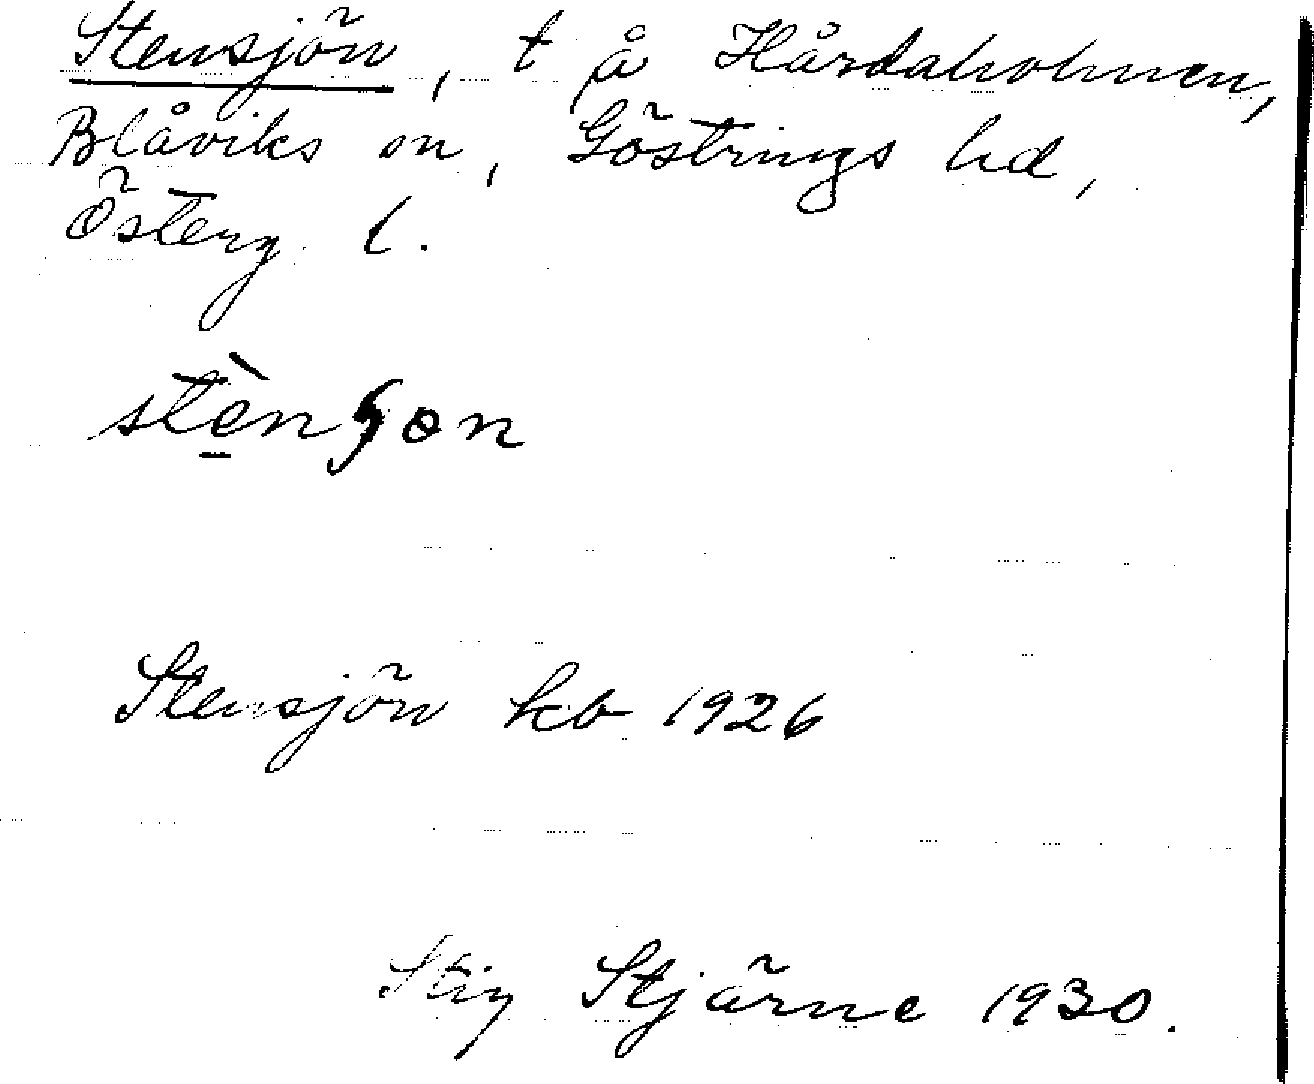 Stensjön, t å Hårdaholmen,
Blåviks sn, Göstrings hd,
Österg. l.
stènʃon
Stensjön kb 1926
Stig Stjärne 1930.